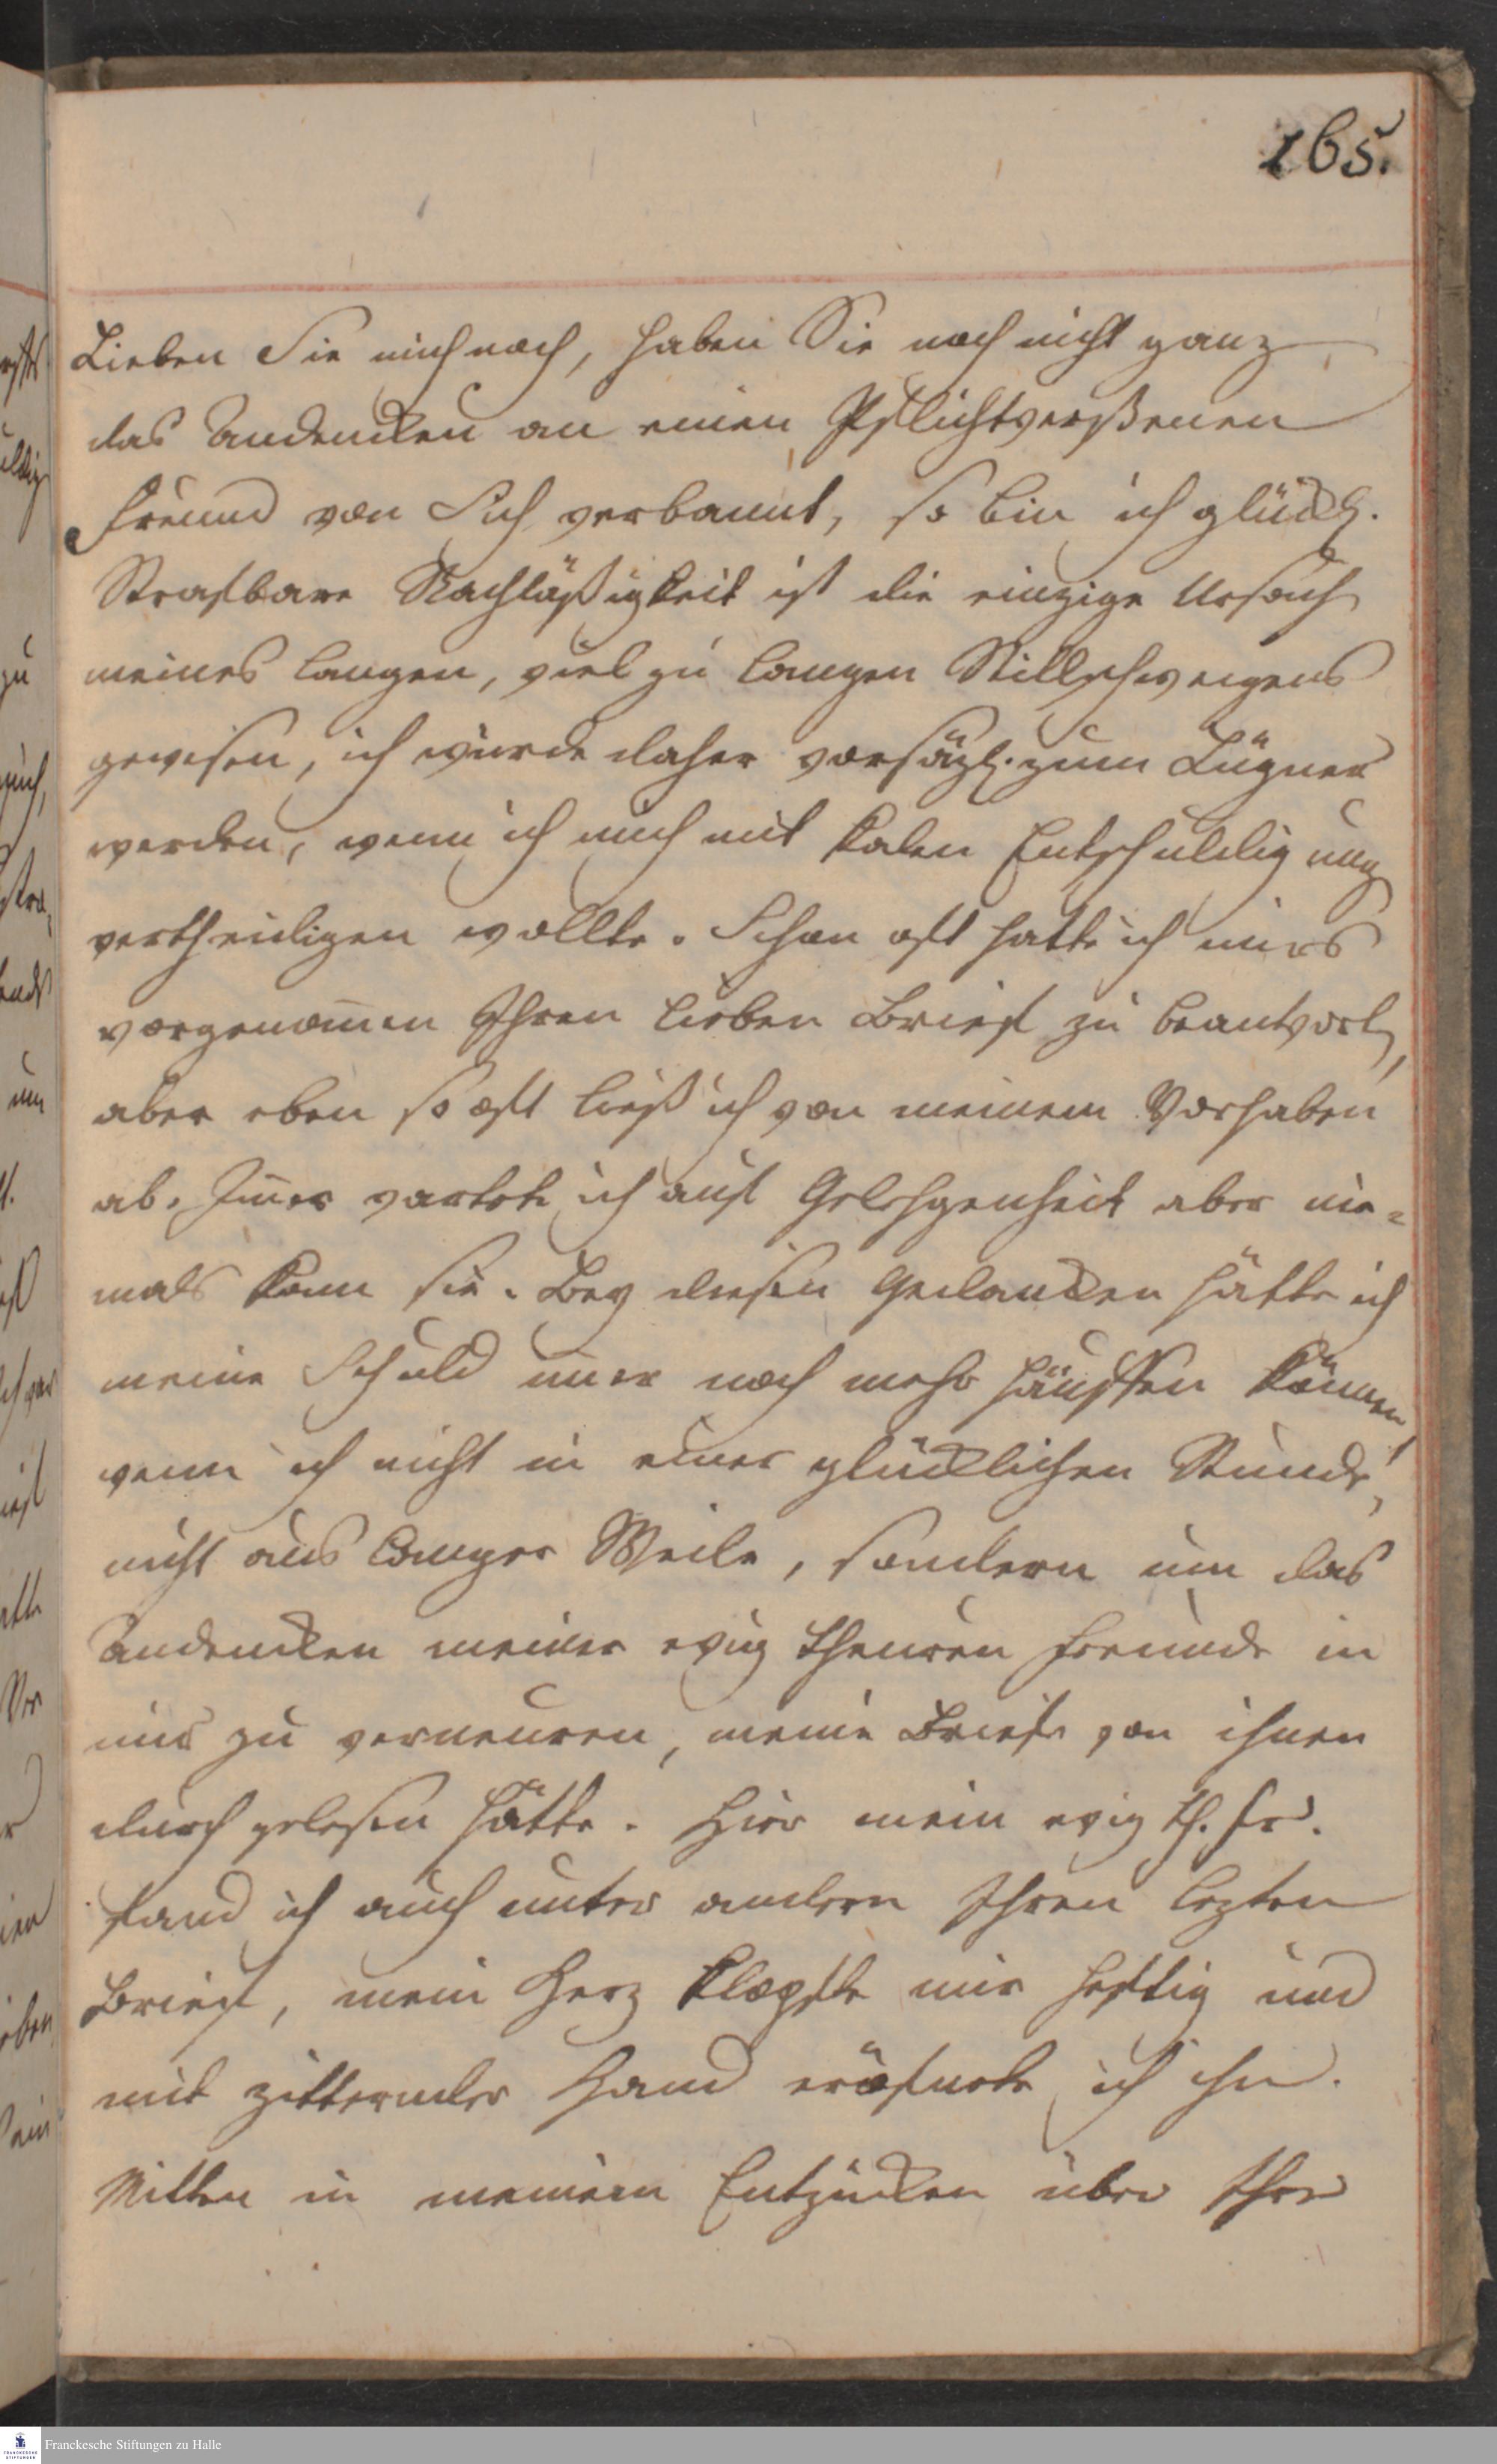 165.
Lieben Sie mich noch, haben Sie noch nicht ganz
das Andencken an einen Pflichtvergeßenen
Freund von Sich verbannt, so bin ich glückl.
Strafbare Nachläßigkeit ist die einzige Ursach
meines langen, viel zu langen Stillschweigens
gewesen, ich würde daher vorsäzl. zum Lügner
werden, wenn ich mich mit kalen Entschuldigung
vertheidigen wollte. Schon oft hatte ich mirs
vorgenom̅en Ihren lieben Brief zu beantwort,
aber eben so oft ließ ich von meinem Vorhaben
ab. Im̅er wartete ich auf Gelehgenheit aber nie=
mals kam sie. Bey diesen Gedancken hätte ich
meine Schuld im̅er noch mehr häuffen können,
wenn ich nicht in einer glücklichen Stunde,
nicht aus langer Weile, sondern um das
Andencken meiner ewig theuren Freunde in
mir zu verneuren, meine Briefe von ihnen
durch gelesen hätte. Hier mein ewig th. Frd.
fand ich auch unter andern Ihren lezten
Brief, mein Herz klopfte mir heftig und
mit zitternder Hand eröfnete ich ihn.
Mitten in meinem Entzücken über Ihre
Franckesche Stiftungen zu Halle